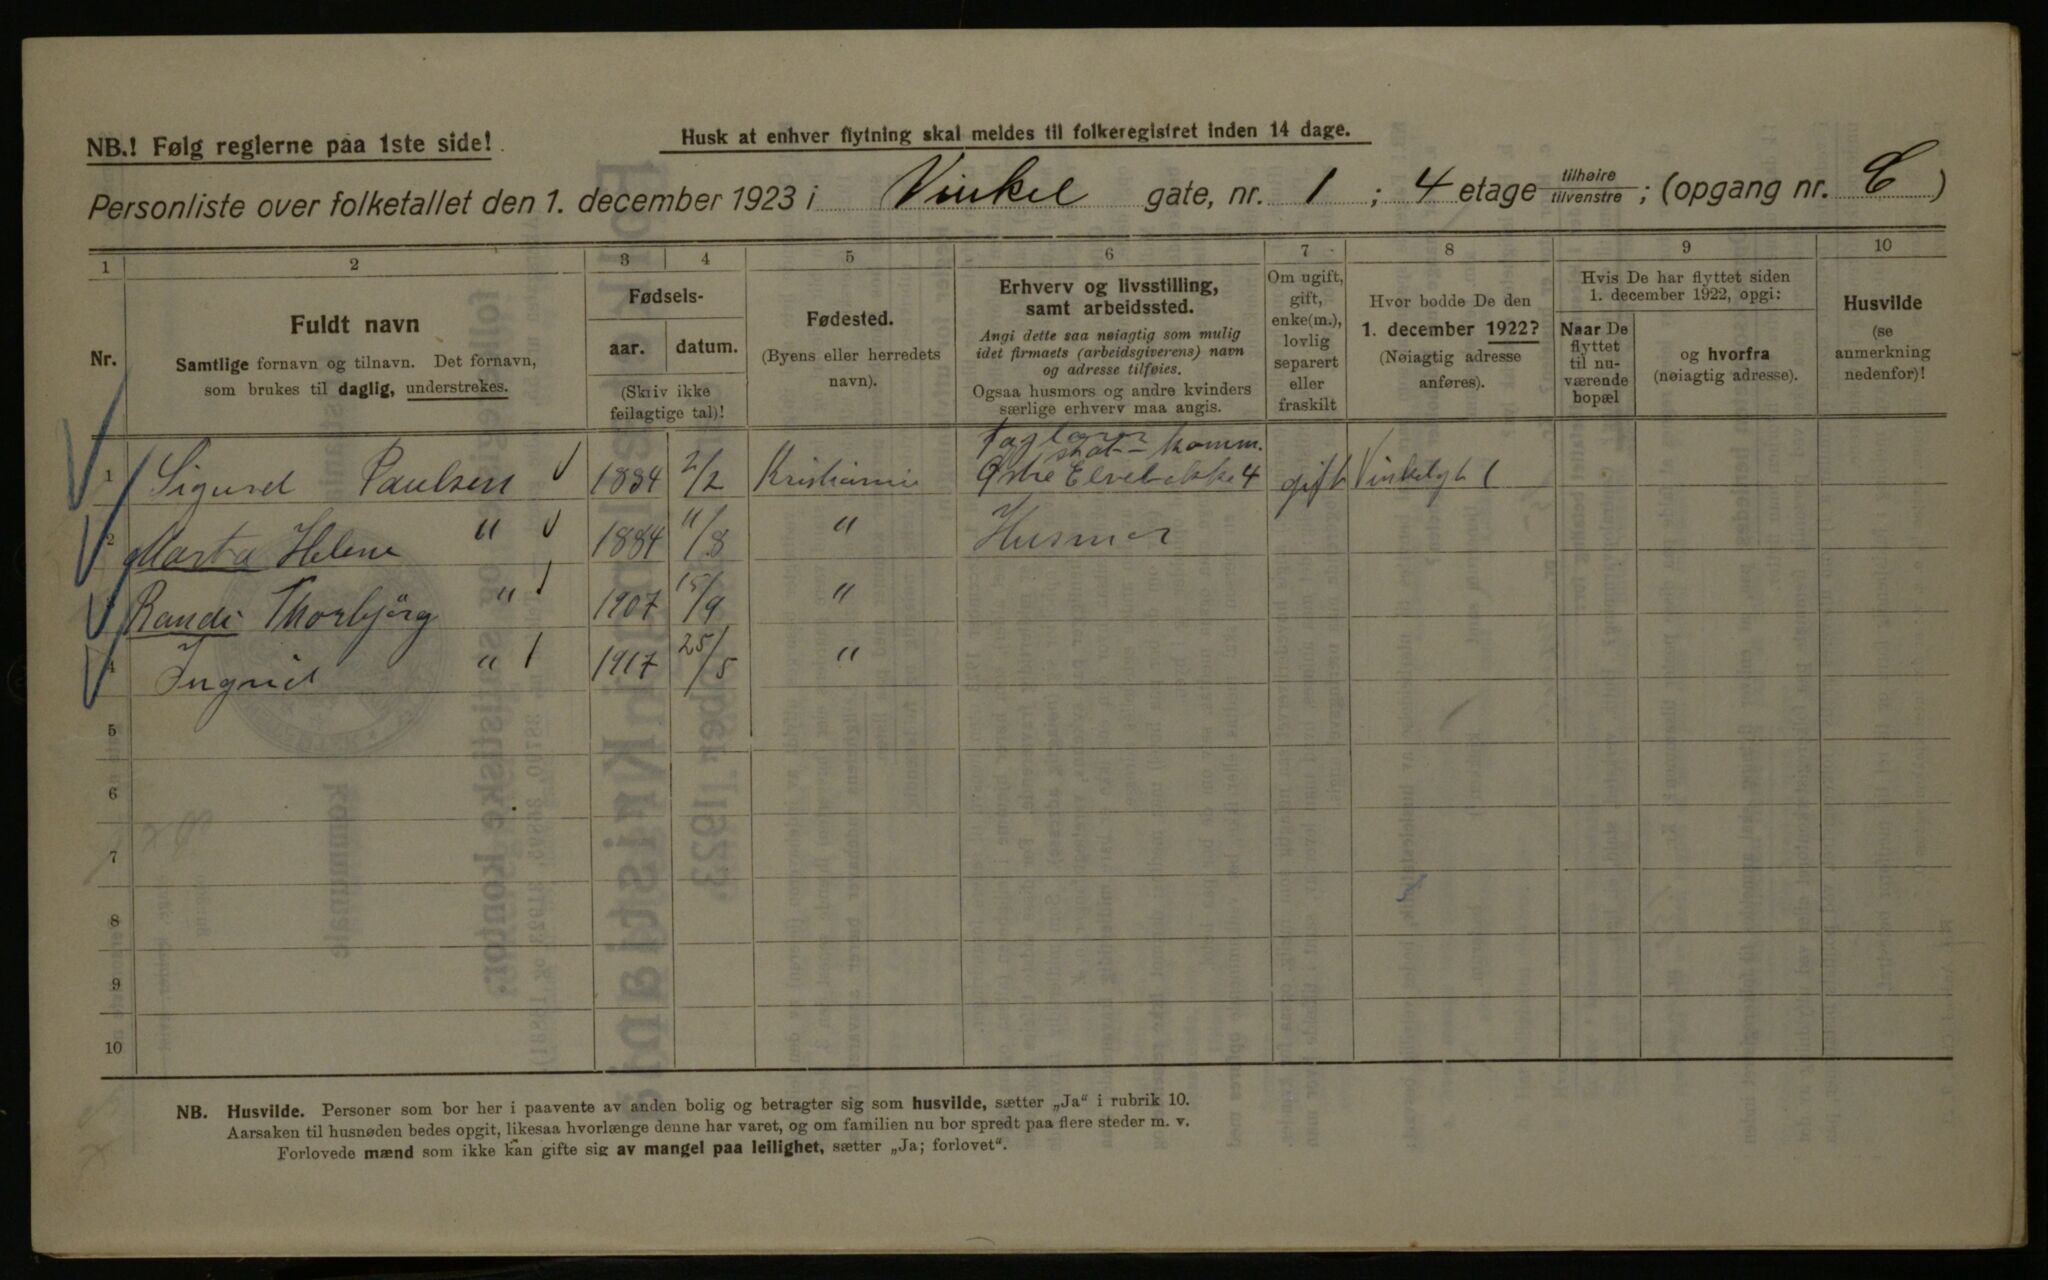 NB.! Følg reglerne paa 1ste side!
Husk at enhver flytning skal meldes til folkeregistret inden 14 dage.
Personliste over folketallet den 1. december 1923 i Vinkel gate, nr. 1 ; 4 etage tilhøire tilvenstre ; (opgang nr. C )
1 2 3 4 5 6 7 8 9 10
Nr.
Fuldt navn
Samtlige fornavn og tilnavn. Det fornavn,
som brukes til daglig, understrekes.
Fødsels-
aar. datum.
(Skriv ikke
feilagtige tal)!
Fødested.
(Byens eller herredets
navn).
Erhverv og livsstilling,
samt arbeidssted.
Angi dette saa nøiagtig som mulig
idet firmaets (arbeidsgiverens) navn
og adresse tilføies.
Ogsaa husmors og andre kvinders
særlige erhverv maa angis.
Om ugift,
gift,
enke(m.),
lovlig
separert
eller
fraskilt
Hvor bodde De den
1. december 1922?
(Nøiagtig adresse
anføres).
Hvis De har flyttet siden
1. december 1922, opgi:
Naar De
flyttet
til nu-
værende
bopæl
og hvorfra
(nøiagtig adresse).
Husvilde
(se
anmerkning
nedenfor)!
komm.
1 Sigurd Paulsen 1884 2/2 Kristiania Østre Elvebakke 4 gift Vinkelgt 1
2 Marta Helene " 1884 11/8 " Husmor
3 Randi Thorbjörg " 1907 15/9 "
4 Ingrid " 1917 25/5 "
5
6
7
8
9
10
NB. Husvilde. Personer som bor her i paavente av anden bolig og betragter sig som husvilde, sætter „Ja“ i rubrik 10.
Aarsaken til husnøden bedes opgit, likesaa hvorlænge denne har varet, og om familien nu bor spredt paa flere steder m. v.
Forlovede mænd som ikke kan gifte sig av mangel paa leilighet, sætter „Ja; forlovet“.